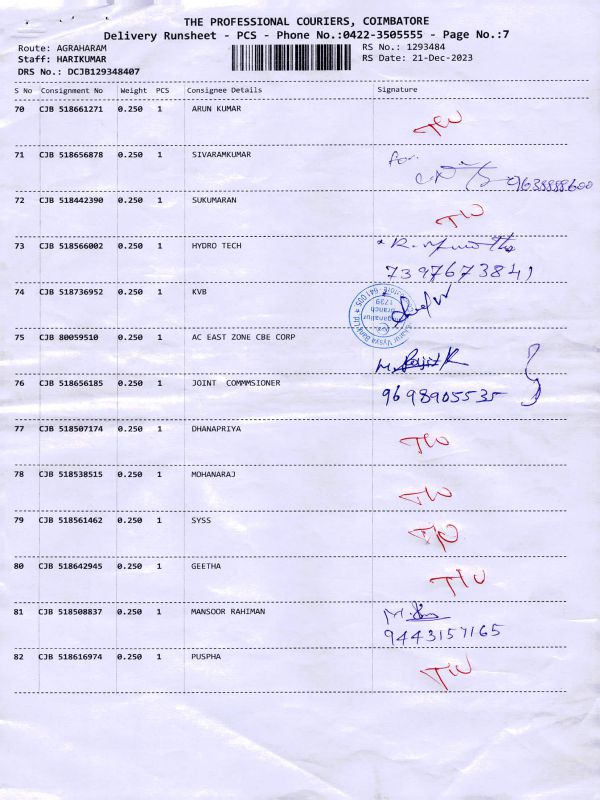 THE PROFESSIONAL COURIERS, COIMBATORE
Delivery Runsheet - PCS - Phone No.:0422-3505555 - Page No.:7
Route: AGRAHARAM RS No.: 1293484
Staff: HARIKUMAR RS Date: 21-Dec-2023
DRS No.: DCJB129348407
S No Consignment No Weight PCS Consignee Details Signature
70 CJB 518661271 0.250 1 ARUN KUMAR
71 CJB 518656878 0.250 1 SIVARAMKUMAR for
72 CJB 518442390 0.250 1 SUKUMARAN
73 CJB 518566002 0.250 1 HYDRO TECH
7397673841
74 CJB 518736952 0.250 1 KVB
75 CJB 80059510 0.250 1 AC EAST ZONE CBE CORP
76 CJB 518656185 0.250 1 JOINT COMMMSIONER 9698905535
77 CJB 518507174 0.250 1 DHANAPRIYA
78 CJB 518538515 0.250 1 MOHANARAJ
79 CJB 518561462 0.250 1 SYSS
80 CJB 518642945 0.250 1 GEETHA
81 CJB 518508837 0.250 1 MANSOOR RAHIMAN
9443157165
82 CJB 518616974 0.250 1 PUSPHA